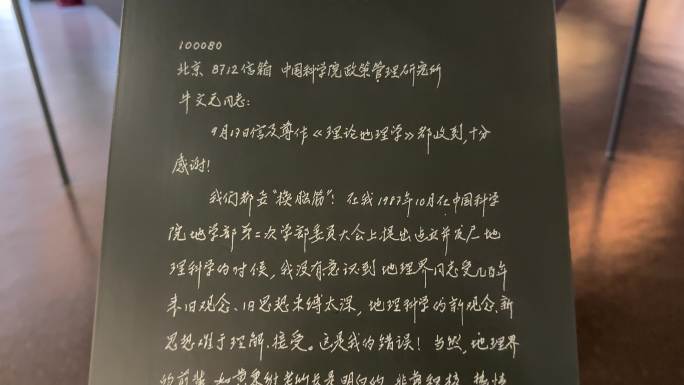 100080
北京 8712信箱 中国科学院政策管理研究所
牛文元同志:
9月17日信及尊作《理论地理学》都收到,十分
感谢!
我们都要“换脑筋”!在我1987年10月在中国科学
院地学部第二次学部委员大会上提出建立并发展地
理科学的时候,我没有意识到地理界同志受几百年
来旧观念、旧思想束缚太深,地理科学的新观念、新
思想难于理解、接受。这是我的错误!当然,地理界
的前辈,如黄秉维老所长是明白的,非常积极、热情